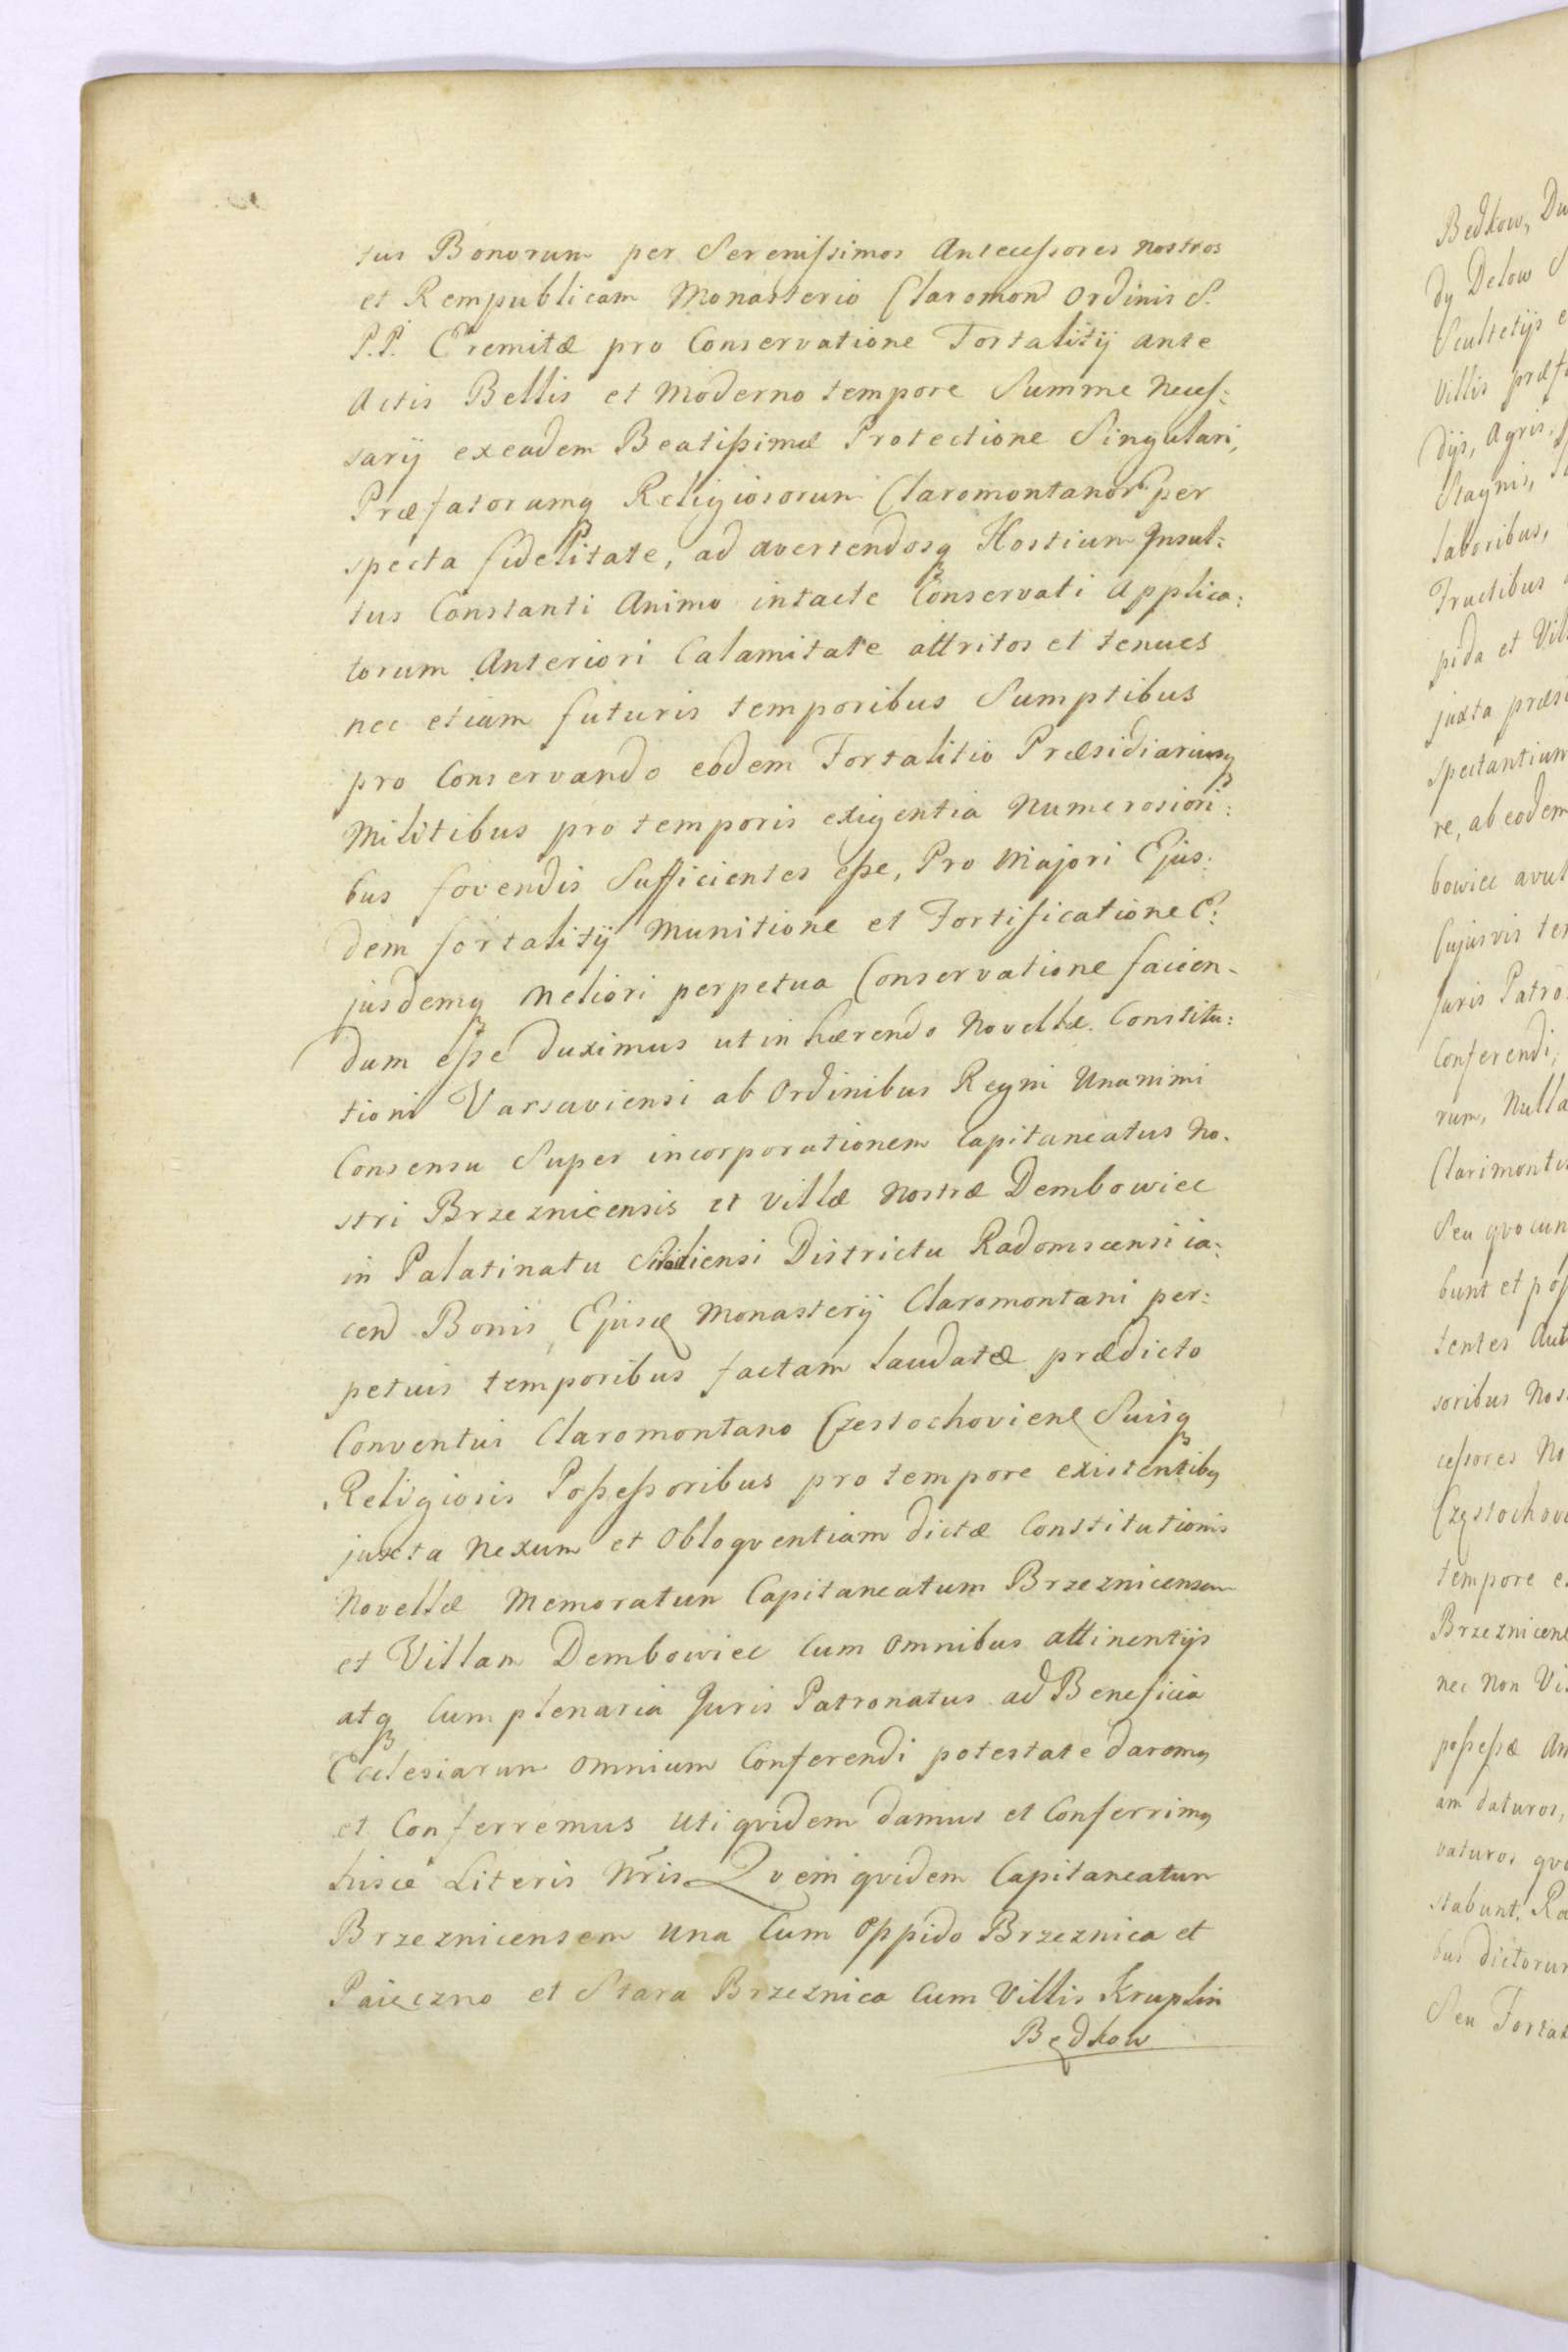 tus Bonorum per Serenissimos Antecessores nostros
et Rempublicam Monasterio Claromond Ordinis S.
P.P. Eremitæ pro Conservatione Fortalitij ante
actis Bellis et Moderno tempore Summe Neces:
sarij exeadem Beatissimæ Protectione Singulari,
Præfatorumq Religiosorum Claromontanor per
specta fidelitate, ad avertendosq Hostium Insul:
tus Constanti Animo intacte Conservati Applica:
torum Anteriori Calamitate attritos et tenues
nec etiam futuris temporibus Sumptibus
pro Conservando eodem Fortalitio Præsidiariusq
Militibus pro temporis exigentia Numerosiori:
bus fovendis Sufficientes esse, Pro Majori Ejus:
dem fortalitij Munitione et Fortificatione E:
jusdemq Meliori perpetua Conservatione facien-
dum esse duximus ut in hærendo Novellæ Constitu:
tioni Varsaviensi ab Ordinibus Regni Unanimi
Consensu Super incorporationem Capitaneatus No-
stri Brzeznicensis et villæ Nostræ Dembowiec
in Palatinatu Districtu Radomscensi ia:
cend Bonis Ejusq Monasterij Claromontani per:
petuis temporibus factam laudatæ prædicto
Conventui Claromontano Czestochoviens Suisq
Religiosis Possessoribus pro tempore existentibq
juxta Nexum et Obloqventiam dictæ Constitutionis
Novellæ Memoratum Capitaneatum Brzeznicensem
et Villam Dembowiec Cum Omnibus attinentijs
atq Cum plenaria Juris Patronatus ad Beneficia
Ecclesiarum Omnium Conferendi potestate daremq
et Conferremus Uti qvidem damus et Conferrimq
hisce Literis Nris Qvem qvidem Capitaneatum
Brzeznicensem Una Cum Oppido Brzeznica et
Paieczno et Stara Brzeznica Cum Villis Kruplin
Będkow
Bedkow, Du
dy Delow S
Scultetijs e
Villis præf
dijs, Agris,
Stagnis,
laboribus,
Fructibus
pida et Vil
juxta præs
spectantium
re, ab eodem
bowiec avul
Cujusvis te
Juris Patro
Conferendi,
rum, Nulla
Clarimontis
Seu qvocun
bunt et pos
tentes Aut
soribus Nos
cessores No
Częstochov
tempore e
Brzeznicens
nec Non Vi
possessæ An
am daturos,
vaturos qvo
stabunt, Ra
bus dictorum
Seu Fortal